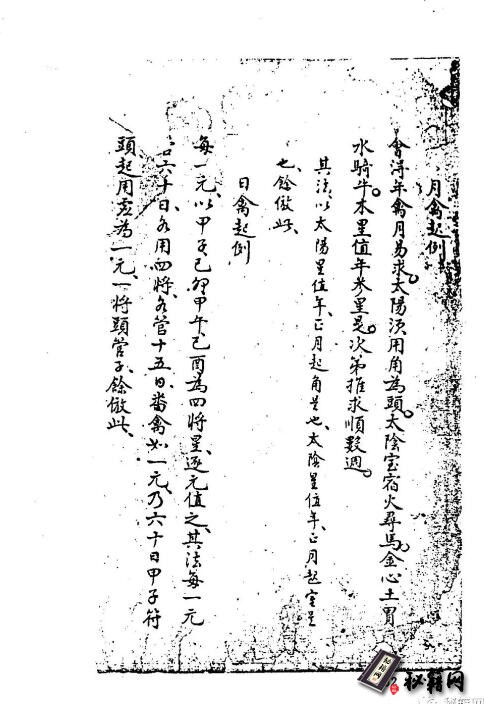 月禽起倒
會得年禽月易求太陽須用角為頭太陰室宿火尋馬金心土胃
水騎牛木星值年參星是次第推求順數週
其法以太陽星值年正月起角是也太陰星值年正月起室是
也餘倣此
日禽起倒
每一元以甲子己卯甲午己酉為四將星逐元值之其法每一元
六十日各用四將各管十五日番禽如一元乃六十日甲子符
頭起用虛為一元一將頭管子餘倣此
秘籍网
秘籍网